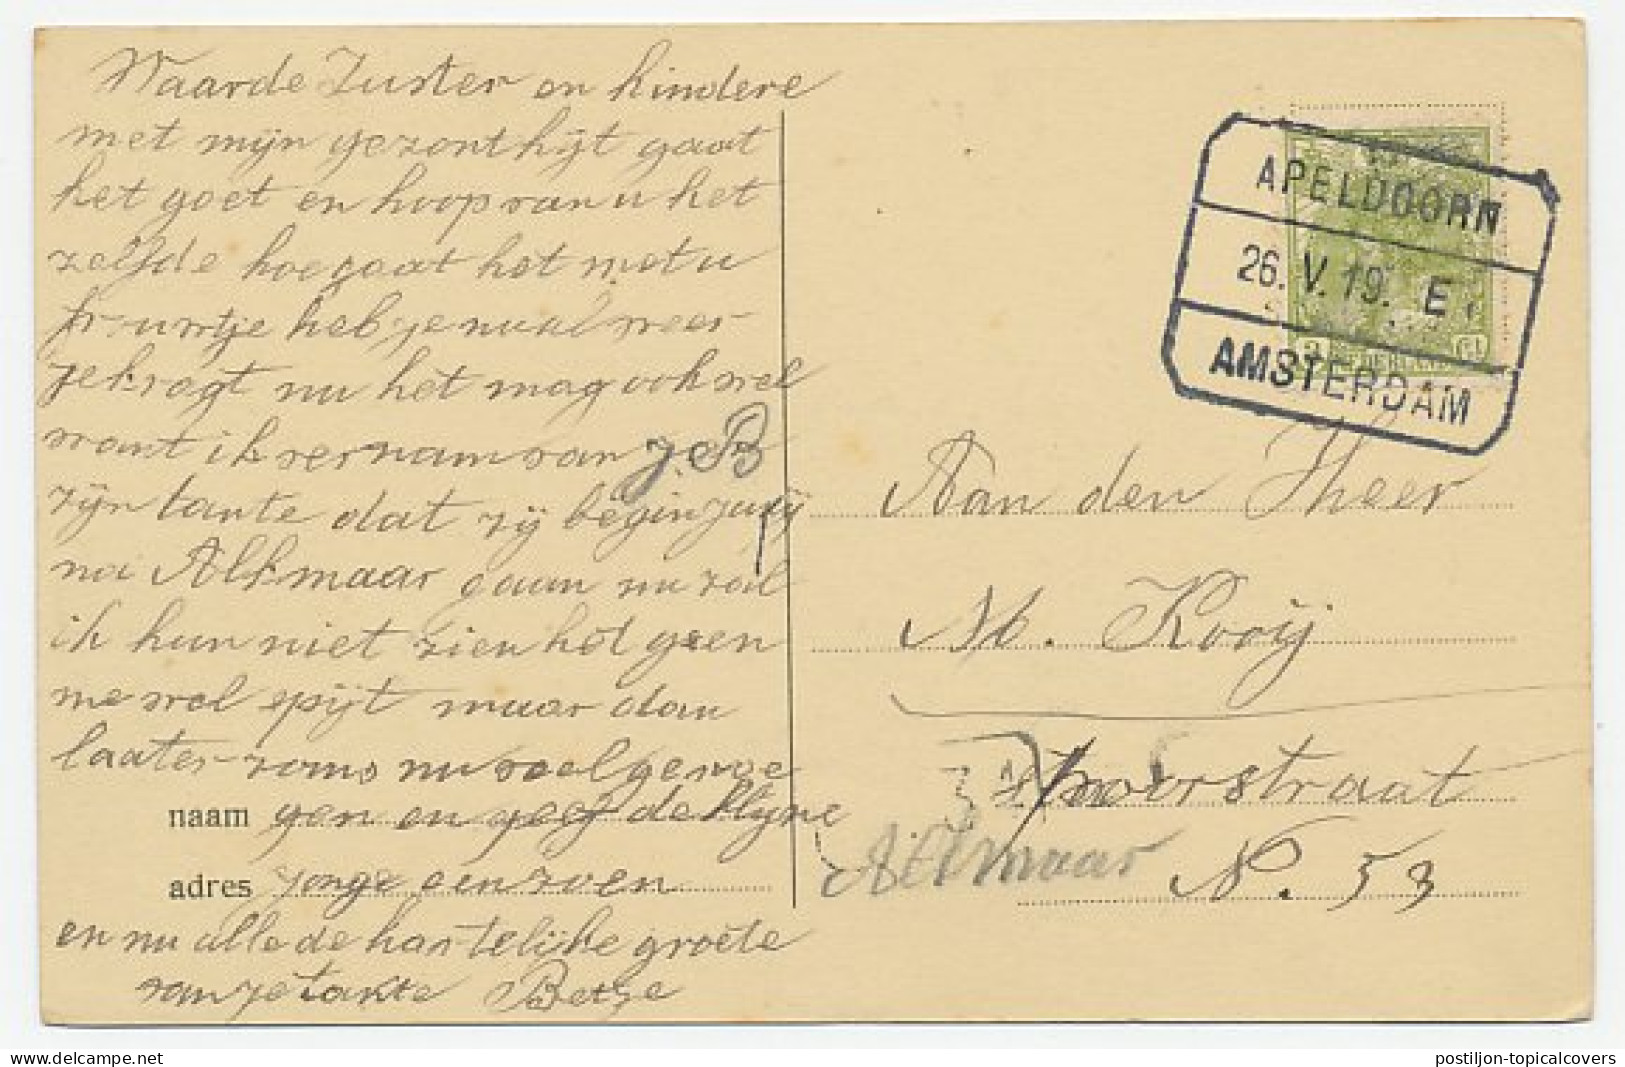 Waarde Zuster en kindere
met mijn gezonthijt gaat
het goet en hoop van u het
zelfde hoe gaat het met u
frouwtje heb je maal weer
gekregt nu het mag ook wel
want ik vernam van J. B
zijn tante dat zij begin Juny
na Alkmaar gaan nu zal
ik hun niet zien het geen
me wel spijt maar dan
laater zoms nu veel genoe
naam gen en geef de klijne
adres jonge een zoen
en nu alle de hartelijke groete
van je takte Betze
APELDOORN
26. V. 19. E
AMSTERDAM
Aan den Heer
M. Kooij
straat
Alkmaar
N. 53
© postiljon-topicalcovers
postiljon-topicalcovers